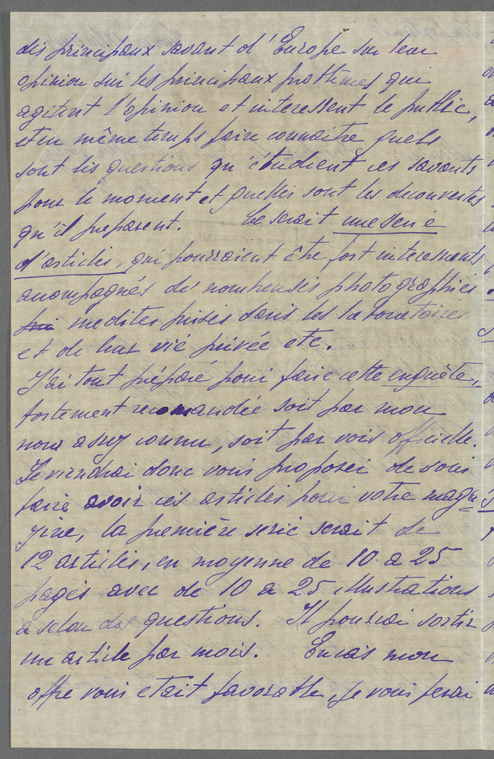 des principaux savant d'Europe sur leur
opinion sur les principaux problèmes qui
agitent l'opinion et interessent le public,
et en même temps faire connaitre quels
sont les questions qu'étudient ces savants
pour le moment et quelles sont les decouvertes
qu'il preparent. Ce serait une serie
d'articles, qui pourraient être fort interessants
acompagnés des nombreuses photographies
inedites prises dans les laboratoires
et de leur vie privée etc.
J'ai tout préparé pour faire cette enquête,
fortement recomandée soit par mon
nom assez connu, soit par voie officielle.
Je viendrai donc vous proposer de vous
faire avoir ces articles pour votre maga-
zine, la première serie serait de
12 articles, en moyenne de 10 a 25
pages avec de 10 a 25 illustrations
a selon des questions. Il pourrai sortir
un article par mois. En cas mon
offre vous etait favorable, je vous ferai